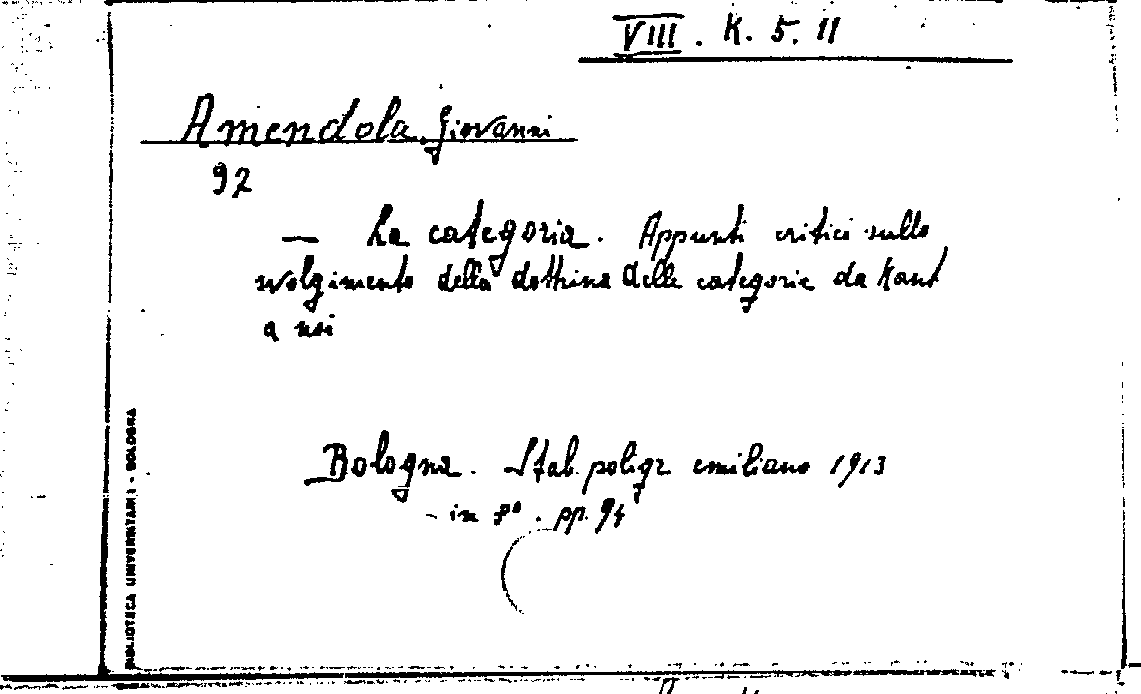 VIII. K. 5. 11
Amendola, Giovanni
92
— La categoria. Appunti critici sullo
svolgimento della dottrina delle categorie da Kant
a noi
Bologna. Stab. poligr. emiliano 1913
- in 8° . pp. 94
BIBLIOTECA UNIVERSITARIA - BOLOGNA